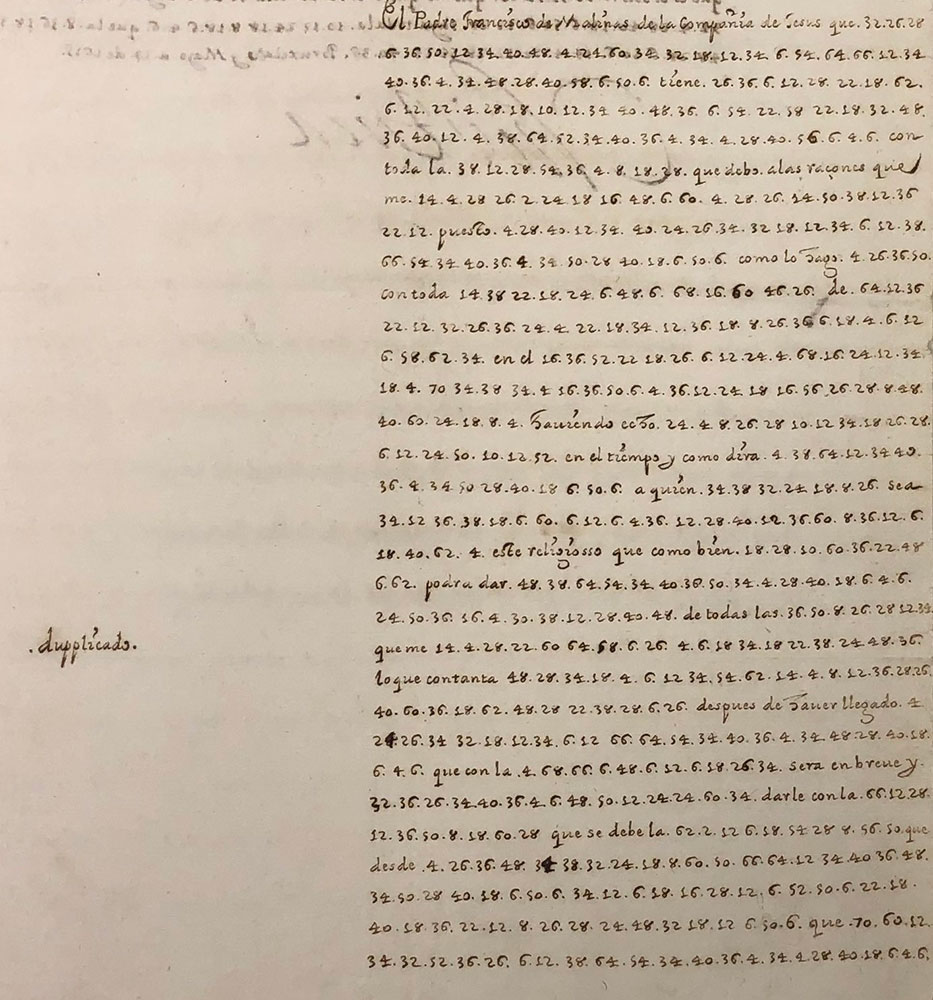 El Padre Francisco de Malinas de la Compañia de Jesus que. 32.26.28
6.36.50.12.34.40.48.4.24.60.34.32.18.12.34.6.54.64.66.12.34
40.36.4.34.48.28.40.58.6.50.6. tiene. 26.36.6.12.28.22.18.62.
6.12.22.4.28.18.10.12.34.40.48.36.6.54.22.58.22.18.32.48.
36.40.12.4.38.64.52.34.40.36.4.34.4.28.40.56.6.4.6. con
toda la. 38.12.28.54.36.4.8.18.28. que debo. a las raçones que
me. 14.4.28.26.2.24.18.16.48.6.60.4.28.26.14.50.38.12.36
22.12. puesto. 4.28.40.12.34.40.24.26.34.32.18.12.34.6.12.38.
66.54.34.40.36.4.34.50.28.40.18.6.50.6. como lo hago. 4.26.36.50.
con toda 14.38.22.18.24.6.48.6.68.16.60.46.26. de. 64.12.36
22.12.32.26.36.24.4.22.18.34.12.36.18.8.26.36.6.18.4.6.12
6.58.62.34. en el 16.36.52.22.18.26.6.12.24.4.68.16.24.12.34.
18.4.70.34.38.34.4.16.36.50.6.4.36.12.24.18.16.56.26.28.8.48.
40.60.24.18.8.4. hauiendo echo. 24.4.8.26.28.10.12.34.18.26.28.
6.12.24.50.10.12.52. en el tiempo y como dira. 4.38.64.12.34.40.
36.4.34.50.28.40.18.6.50.6. a quien. 34.38.32.24.18.8.26. sea
34.12.36.38.18.6.60.6.12.6.4.36.12.28.40.12.36.60.8.36.12.6.
18.40.62.4. este religiosso que como bien. 18.28.10.60.36.22.48
6.62. podra dar. 48.38.64.54.34.40.36.50.34.4.28.40.18.6.4.6.
24.50.36.16.4.30.38.12.28.40.48. de todas las. 36.50.8.26.28.12.34.
.dupplicado.
que me 14.4.28.22.60.64.58.6.26.4.6.18.34.18.22.38.24.48.36.
lo que con tanta 48.28.34.18.4.6.12.34.54.62.14.4.8.12.36.28.26.
40.60.36.18.62.48.28.22.38.28.6.26. despues de hauer llegado. 4
24.26.34.32.18.12.34.6.12.66.64.54.34.40.36.4.34.48.28.40.18.
6.4.6. que con la .4.68.66.6.48.6.12.6.18.26.34. sera en breue y
32.36.26.34.40.36.4.6.48.50.12.24.24.60.34. darle con la. 66.12.28.
12.36.50.8.18.60.28 que se debe la. 62.2.12.6.18.54.28.8.56.50. que
desde .4.26.36.48.34.38.32.24.18.8.60.50.66.64.12.34.40.36.48.
34.50.28.40.18.6.50.6.34.12.6.18.16.28.12.6.52.50.6.22.18.
40.18.36.22.12.8.26.28.24.48.32.18.12.6.50.6. que .70.60.12.
34.32.52.36.26.6.12.38.64.54.34.40.36.4.34.4.28.40.18.6.4.6.